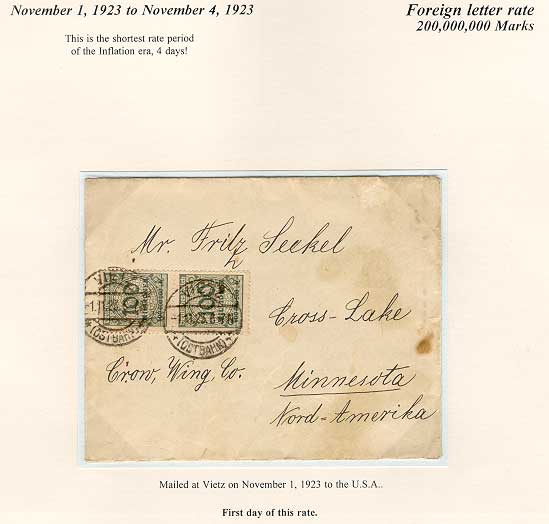 November 1, 1923 to November 4, 1923
Foreign letter rate
200,000,000 Marks
This is the shortest rate period
of the Inflation era, 4 days!
Mr. Fritz Seekel
VIETZ
100
100
(OSTBAHN)
(OSTBAHN)
Cross-Lake
Crow, Wing, Co.
Minnesota
Nord-Amerika
Mailed at Vietz on November 1, 1923 to the U.S.A..
First day of this rate.